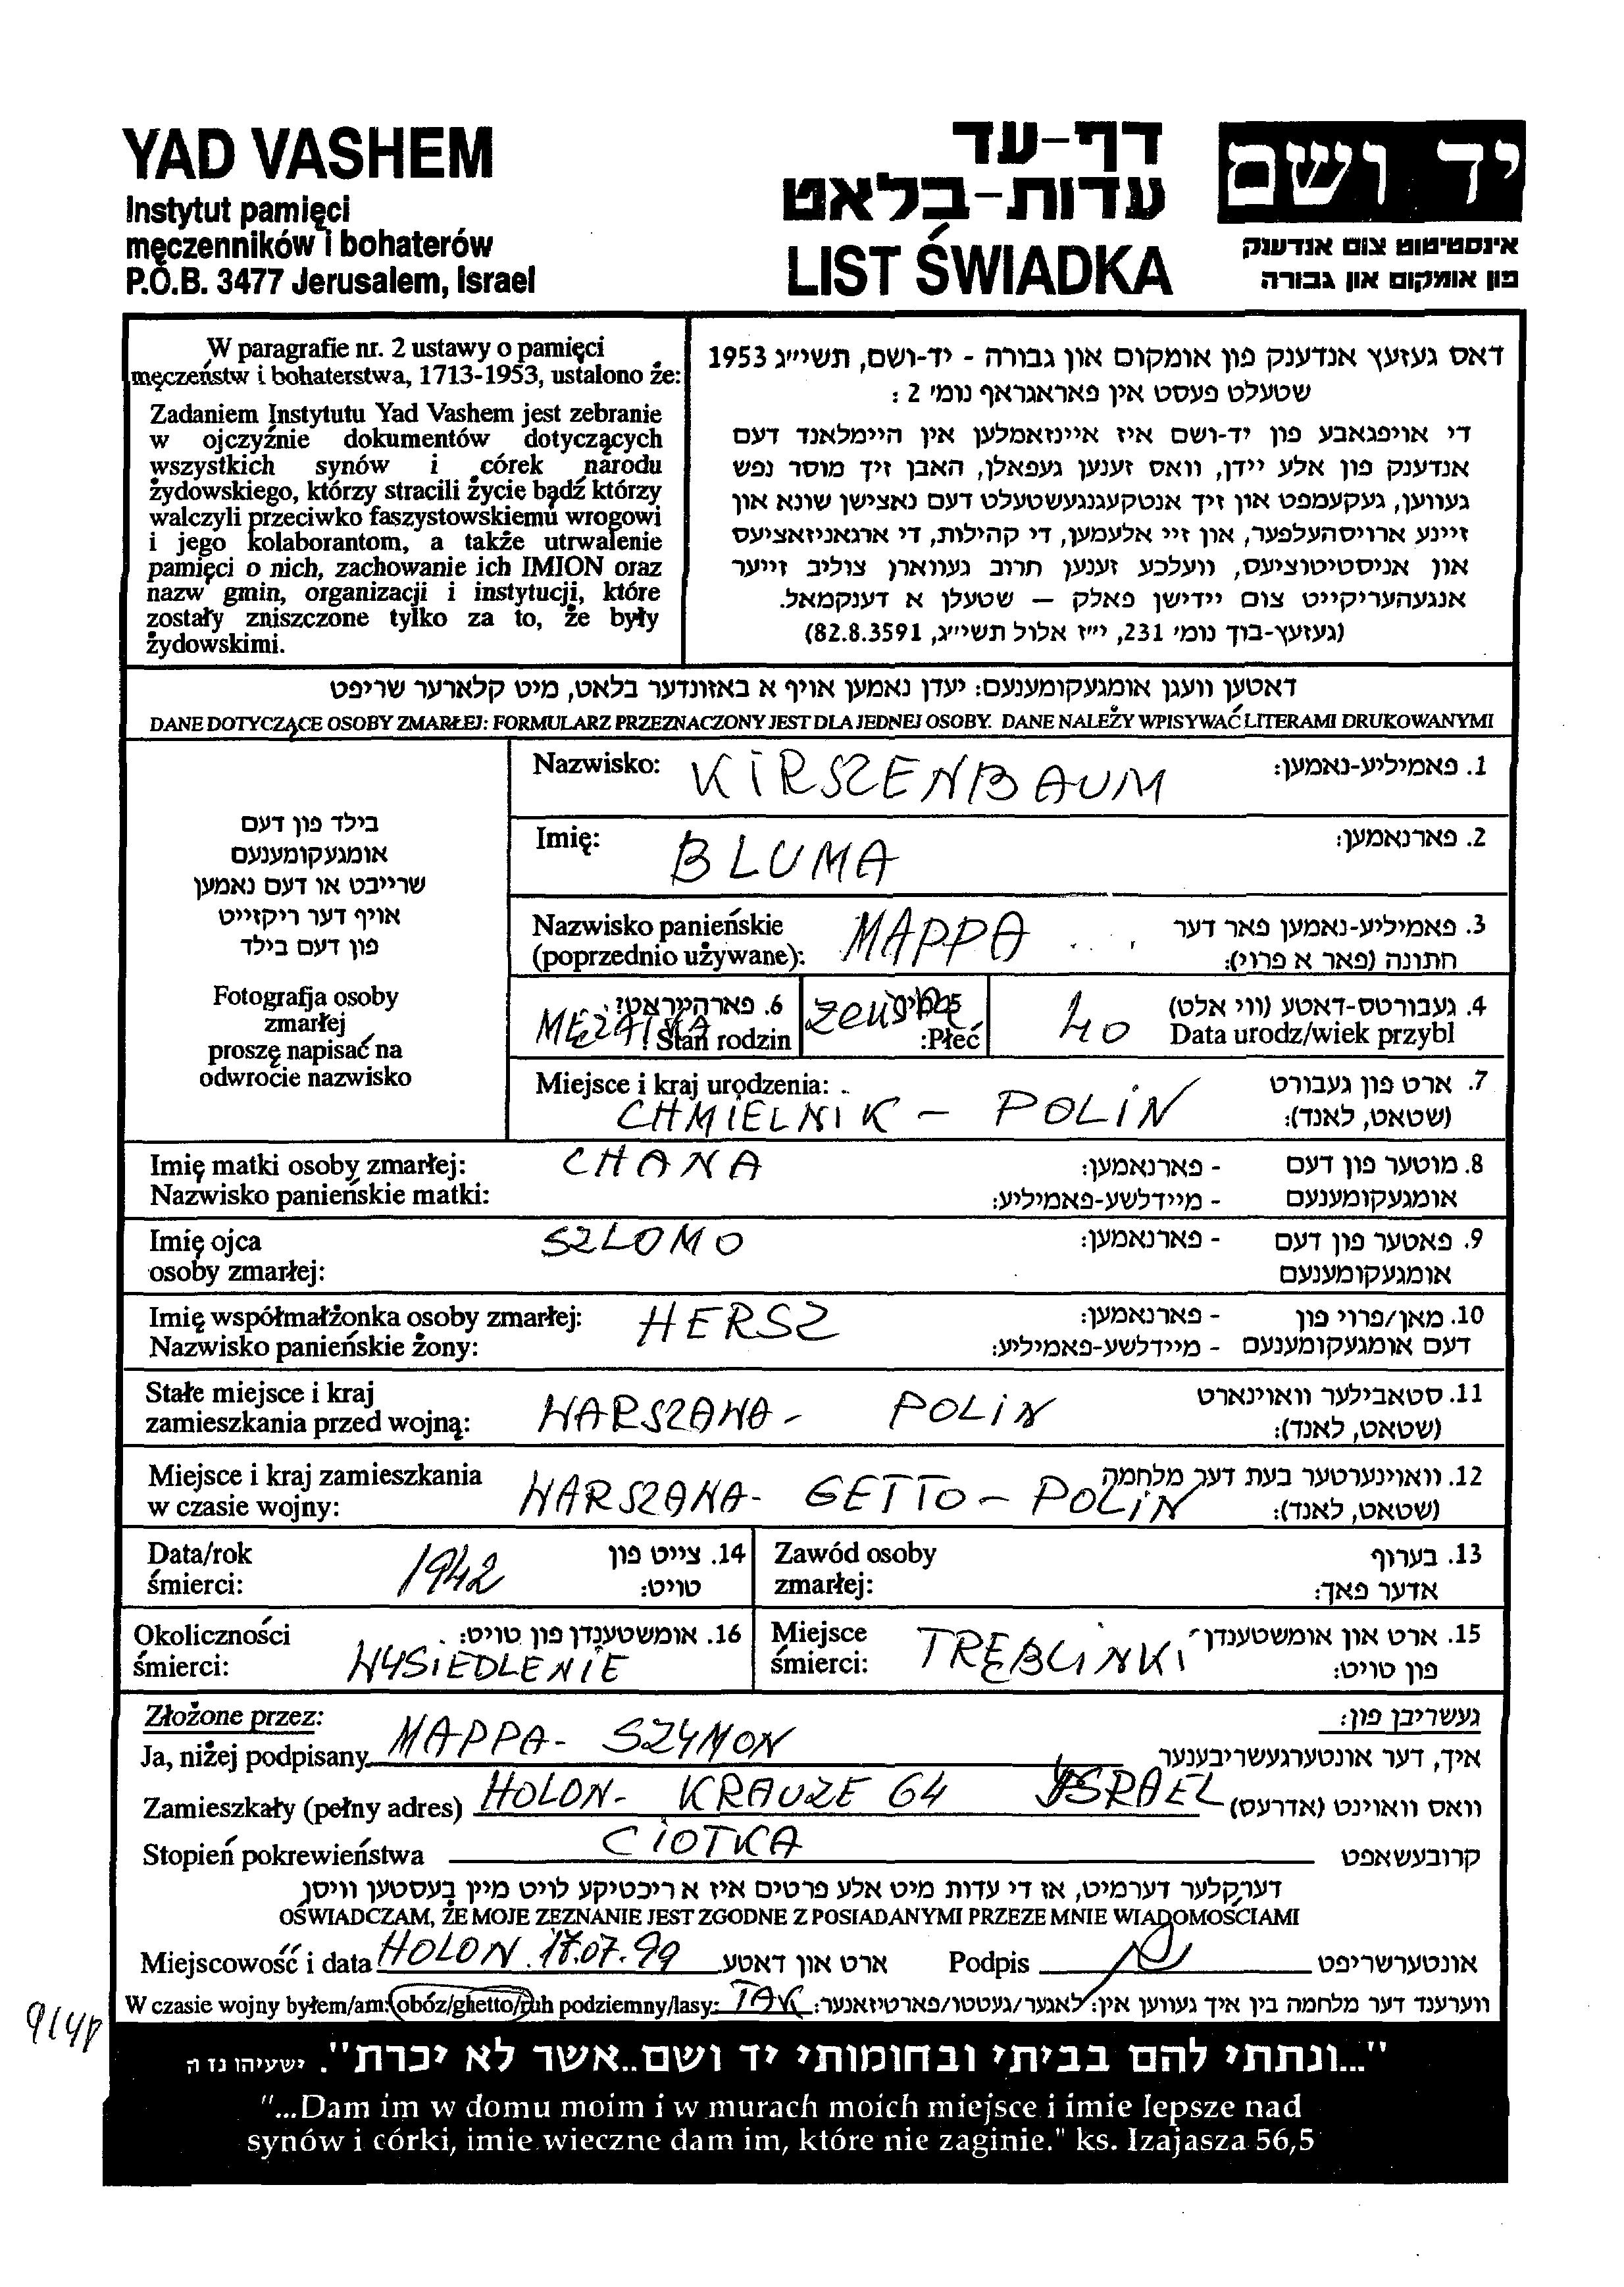 YAD VASHEM
Instytut pamięci
męczenników i bohaterów
P.O.B. 3477 Jerusalem, Israel
דף-עד
עדות-בלאט
LIST ŚWIADKA
יד ושם
אינסטיטוט צום אנדענק
פון אומקום און גבורה
W paragrafie nr. 2 ustawy o pamięci
męczeństw i bohaterstwa, 1713-1953, ustalono że:
Zadaniem Instytutu Yad Vashem jest zebranie
w ojczyźnie dokumentów dotyczących
wszystkich synów i córek narodu
żydowskiego, którzy stracili życie bądź którzy
walczyli przeciwko faszystowskiemu wrogowi
i jego kolaborantom, a także utrwalenie
pamięci o nich, zachowanie ich IMION oraz
nazw gmin, organizacji i instytucji, które
zostały zniszczone tylko za to, że były
żydowskimi.
דאס געזעץ אנדענק פון אומקום און גבורה - יד-ושם, תשי״ג 1953
שטעלט פעסט אין פאראגראף נומ׳ 2 :
די אויפגאבע פון יד-ושם איז איינזאמלען אין היימלאנד דעם
אנדענק פון אלע יידן, וואס זענען געפאלן, האבן זיך מוסר נפש
געווען, געקעמפט און זיך אנטקעגנגעשטעלט דעם נאצישן שונא און
זיינע ארויסהעלפער, און זיי אלעמען, די קהילות, די ארגאניזאציעס
און אניסטיטוציעס, וועלכע זענען חרוב געווארן צוליב זייער
אנגעהעריקייט צום יידישן פאלק — שטעלן א דענקמאל.
(געזעץ-בוך נומ׳ 231, י״ז אלול תשי״ג, 82.8.3591)
דאטען וועגן אומגעקומענעם: יעדן נאמען אויף א באזונדער בלאט, מיט קלארער שריפט
DANE DOTYCZĄCE OSOBY ZMARŁEJ: FORMULARZ PRZEZNACZONY JEST DLA JEDNEJ OSOBY. DANE NALEŻY WPISYWAĆ LITERAMI DRUKOWANYMI
בילד פון דעם
אומגעקומענעם
שרייבט או דעם נאמען
אויף דער ריקזייט
פון דעם בילד
Fotografja osoby
zmarłej
proszę napisać na
odwrocie nazwisko
Nazwisko: KIRSZENBAUM 1. פאמיליע-נאמען:
Imię: BLUMA 2. פארנאמען:
Nazwisko panieńskie MAPPA 3. פאמיליע-נאמען פאר דער
(poprzednio używane): חתונה (פאר א פרוי):
6. פארהייראט? 4. געבורטס-דאטע (ווי אלט)
MĘŻATKA Stan rodzin :Płeć 40 Data urodz/wiek przybl
Miejsce i kraj urodzenia: 7. ארט פון געבורט
CHMIELNIK - POLIN (שטאט, לאנד):
Imię matki osoby zmarłej: CHANA - פארנאמען: 8. מוטער פון דעם
Nazwisko panieńskie matki: - מיידלשע-פאמיליע: אומגעקומענעם
Imię ojca SZLOMO - פארנאמען: 9. פאטער פון דעם
osoby zmarłej: אומגעקומענעם
Imię współmałżonka osoby zmarłej: HERSZ - פארנאמען: 10. מאן/פרוי פון
Nazwisko panieńskie żony: - מיידלשע-פאמיליע: דעם אומגעקומענעם
Stałe miejsce i kraj 11. סטאבילער וואוינארט
zamieszkania przed wojną: WARSZAWA - POLIN (שטאט, לאנד):
Miejsce i kraj zamieszkania 12. וואוינערטער בעת דער מלחמה
w czasie wojny: WARSZAWA - GETTO - POLIN (שטאט, לאנד):
Data/rok 1942 14. צייט פון Zawód osoby 13. בערוף
śmierci: טויט: zmarłej: אדער פאך:
Okoliczności 16. אומשטענדן פון טויט: Miejsce TRĘBLINKI 15. ארט און אומשטענדן
śmierci: WYSIEDLENIE śmierci: פון טויט:
Złożone przez: געשריבן פון:
Ja, niżej podpisany MAPPA - SZYMON איך, דער אונטערגעשריבענער
Zamieszkały (pełny adres) HOLON - KRAUZE 64 ISRAEL וואס וואוינט (אדרעס)
Stopień pokrewieństwa CIOTKA קרובעשאפט
דערקלער דערמיט, אז די עדות מיט אלע פרטים איז א ריכטיקע לויט מיין בעסטען וויסן
OŚWIADCZAM, ŻE MOJE ZEZNANIE JEST ZGODNE Z POSIADANYMI PRZEZE MNIE WIADOMOŚCIAMI
Miejscowość i data HOLON 17.07.99 ארט און דאטע Podpis אונטערשריפט
W czasie wojny byłem/am: obóz/ghetto/ruh podziemny/lasy: TAK ווערענד דער מלחמה בין איך געווען אין: לאגער/געטטו/פארטיזאנער:
"...ונתתי להם בביתי ובחומותי יד ושם..אשר לא יכרת". ישעיהו נו ה
"...Dam im w domu moim i w murach moich miejsce i imie lepsze nad
synów i córki, imie wieczne dam im, które nie zaginie." ks. Izajasza 56,5